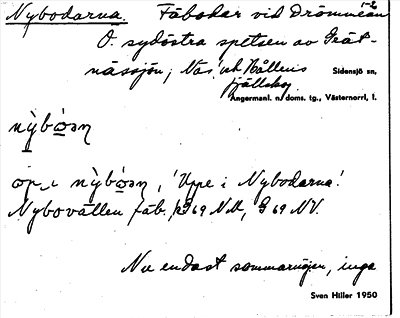 Nybodarna. Fäbodar vid Drömmeån
O. sydöstra spetsen av Grät-
nässjön; Näs' och Bållens
fjällskog
Sidensjö sn,
Ångermanl. n. doms. tg., Västernorrl. l.
nỳbósn
op ı nỳbósn, 'Uppe i Nybodarna'.
Nybovallen fäb. NV.
Nu endast sommarnöjen, inga
Sven Hiller 1950